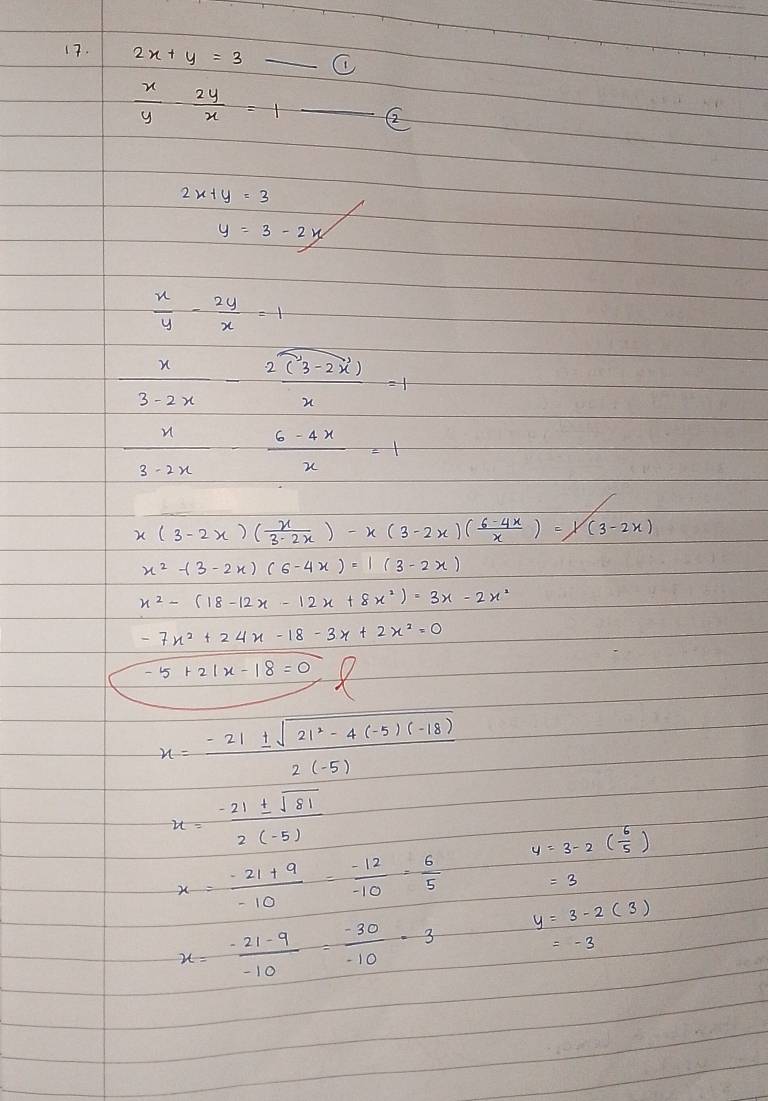 17. 2x + y = 3 —— ①
x/y - 2y/x = 1 —— ②
2x + y = 3
y = 3 - 2x
x/y - 2y/x = 1
x/(3 - 2x) - 2(3 - 2x)/x = 1
x/(3 - 2x) - (6 - 4x)/x = 1
x(3 - 2x)(x/(3 - 2x)) - x(3 - 2x)((6 - 4x)/x) = 1(3 - 2x)
x² - (3 - 2x)(6 - 4x) = 1(3 - 2x)
x² - (18 - 12x - 12x + 8x²) = 3x - 2x²
-7x² + 24x - 18 - 3x + 2x² = 0
-5 + 21x - 18 = 0
x = (-21 ± √(21² - 4(-5)(-18)))/(2(-5))
x = (-21 ± √81)/(2(-5))
x = (-21 + 9)/(-10) = -12/-10 = 6/5
y = 3 - 2(6/5)
= 3
x = (-21 - 9)/(-10) = -30/-10 = 3
y = 3 - 2(3)
= -3